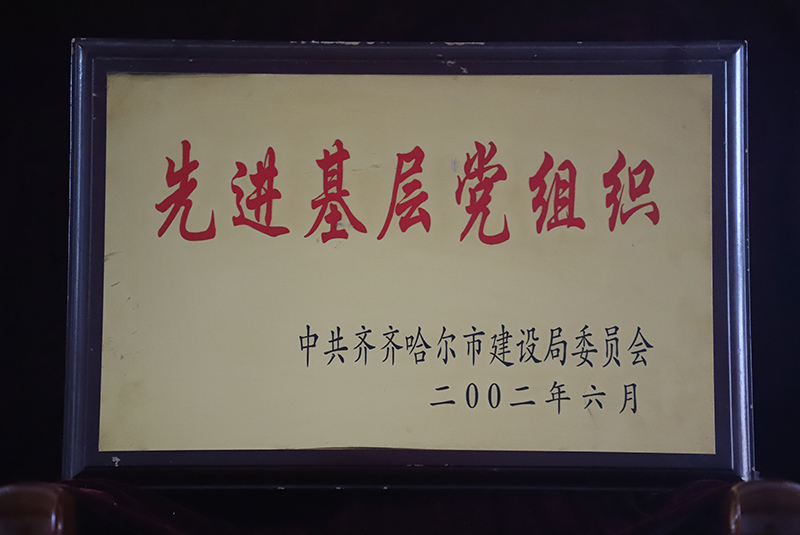 先进基层党组织
中共齐齐哈尔市建设局委员会
二00二年六月